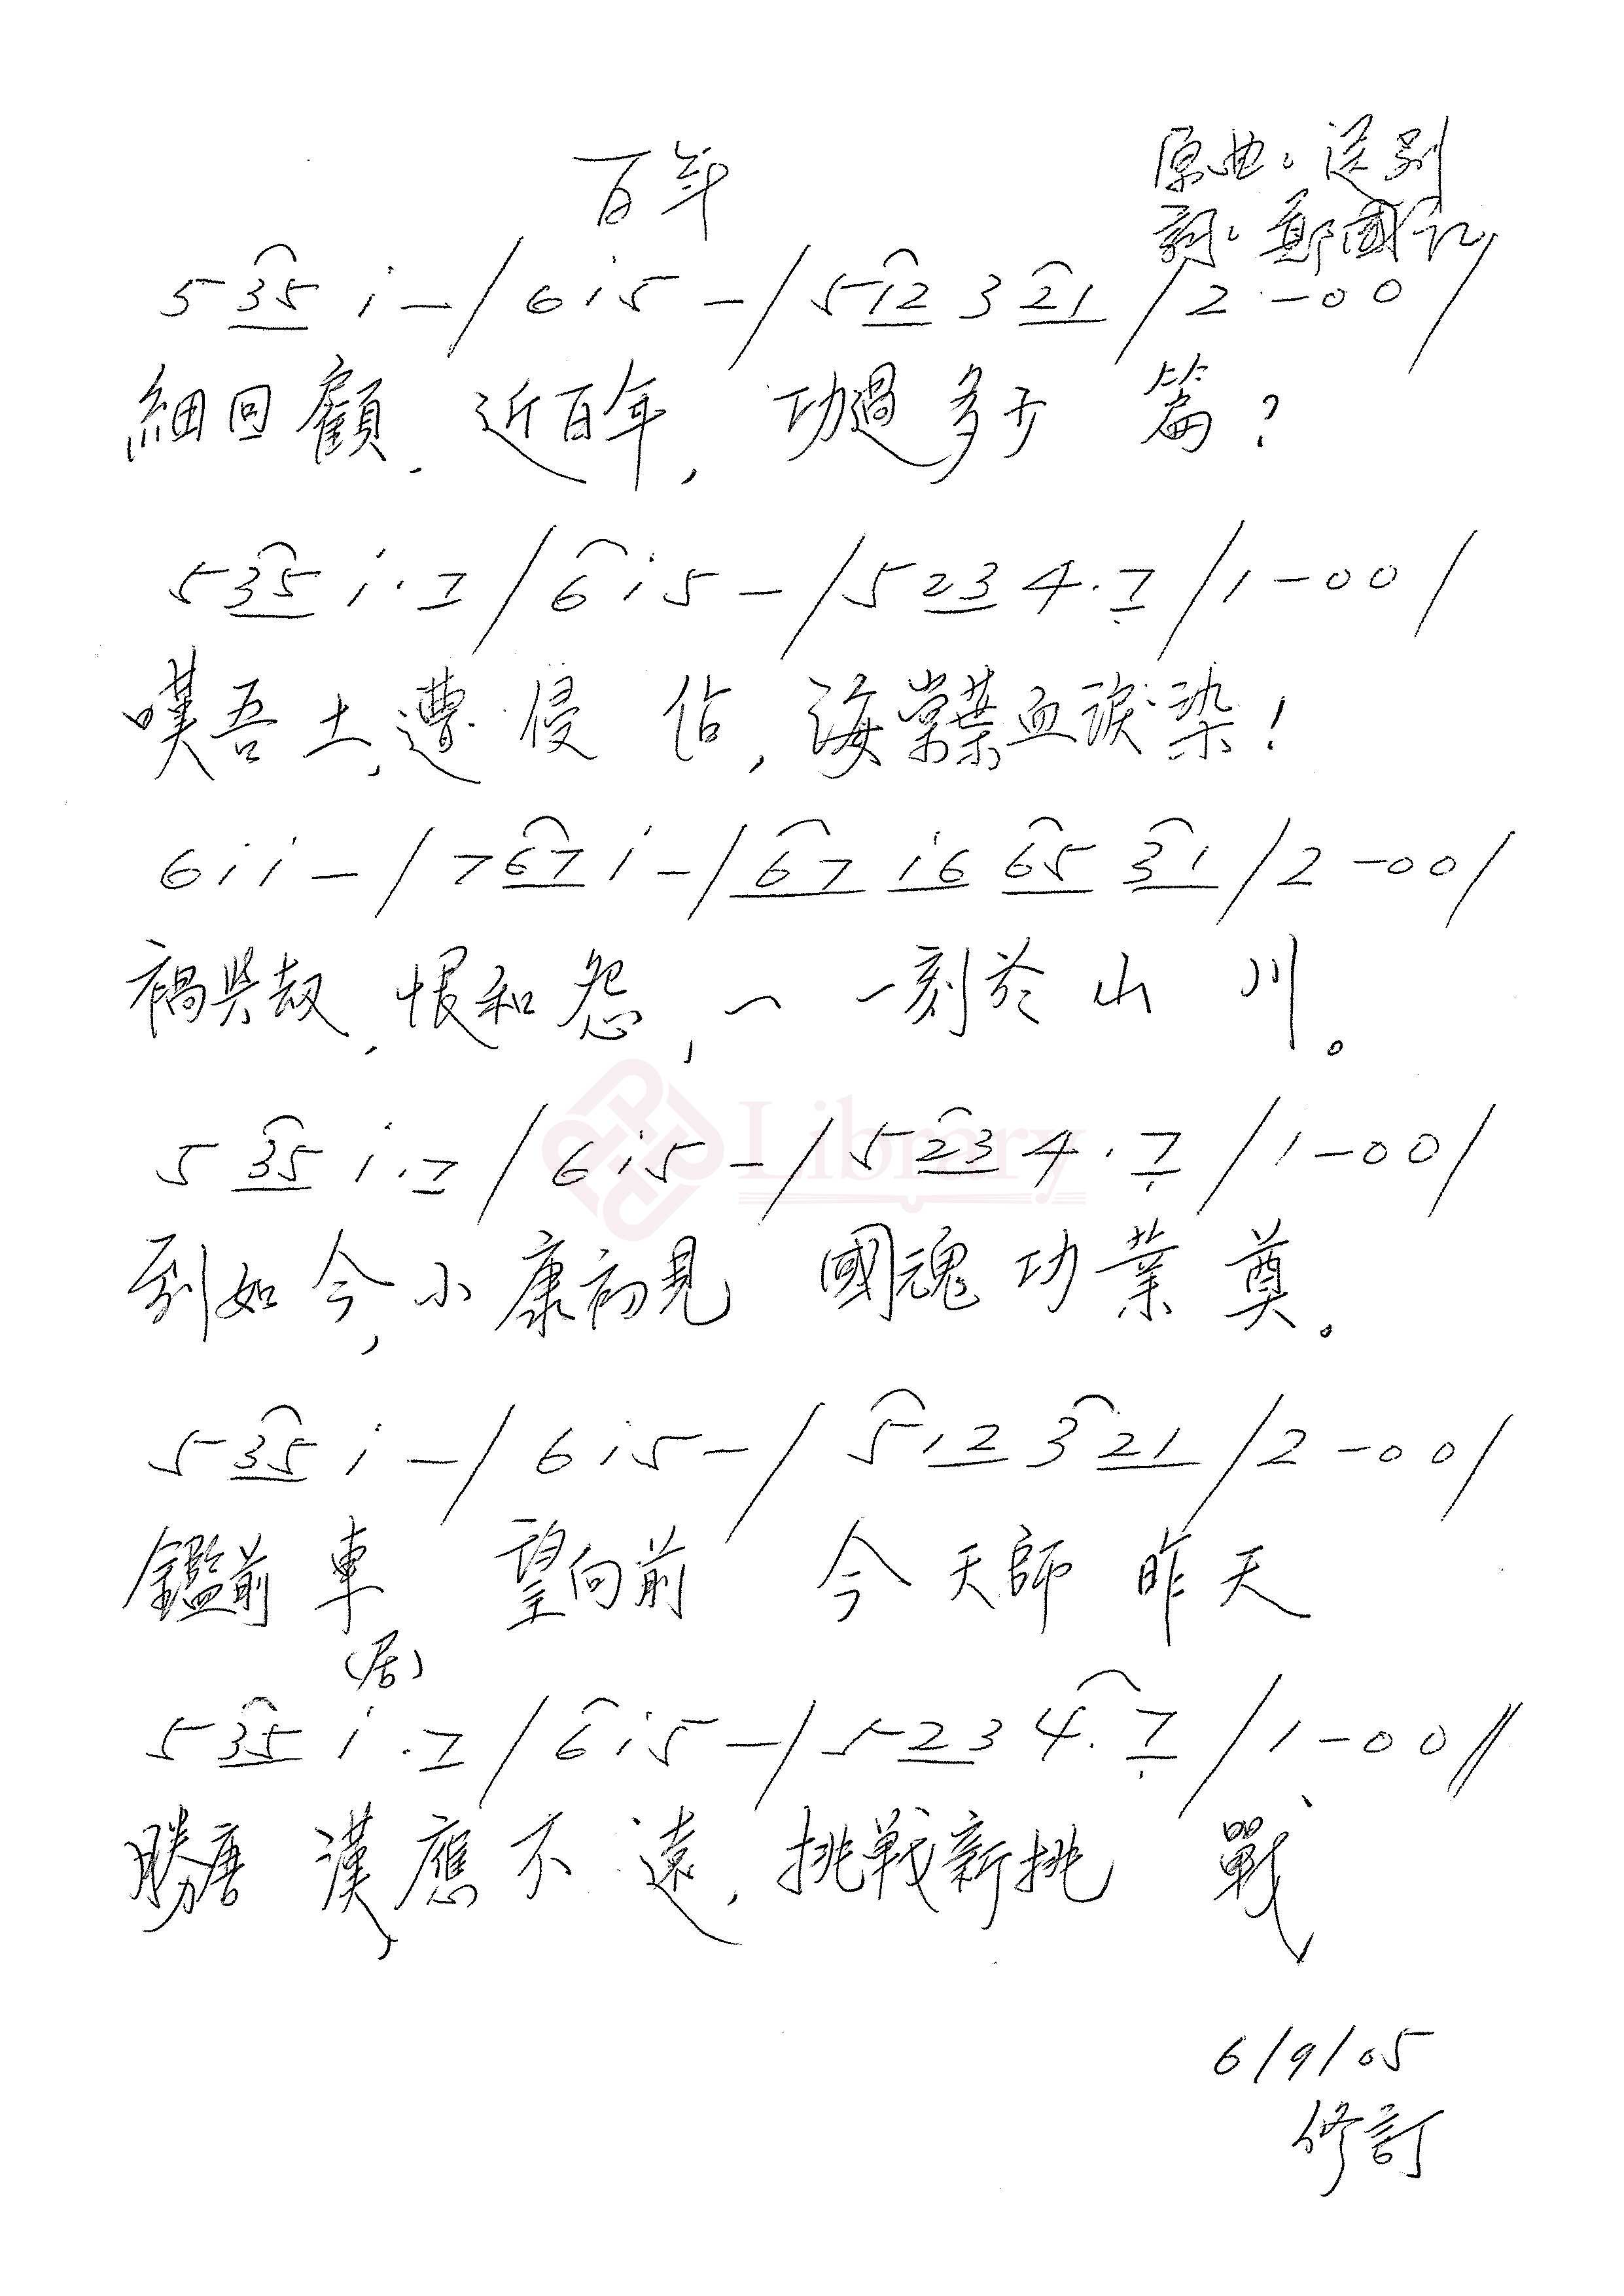 百年
原曲：送別
詞：鄭國江
5 35 i - / 6 i 5 - / 5 12 3 21 / 2 - 0 0 /
細回顧，近百年，功過多少篇？
5 35 i · 7 / 6 i 5 - / 5 23 4 · 7 / 1 - 0 0 /
嘆吾土，遭侵佔，海棠葉血淚染！
6 i i - / 7 67 i - / 67 i6 65 31 / 2 - 0 0 /
禍與劫，恨和怨，一一刻於山川。
5 35 i · 7 / 6 i 5 - / 5 23 4 · 7 / 1 - 0 0 /
到如今，小康初見 國魂功業奠。
5 35 i - / 6 i 5 - / 5 12 3 21 / 2 - 0 0 /
鑑前車 望向前 今天師昨天
(居)
5 35 i · 7 / 6 i 5 - / 5 23 4 · 7 / 1 - 0 0 //
勝唐漢，應不遠，挑戰新挑戰
6/9/05
修訂
Library